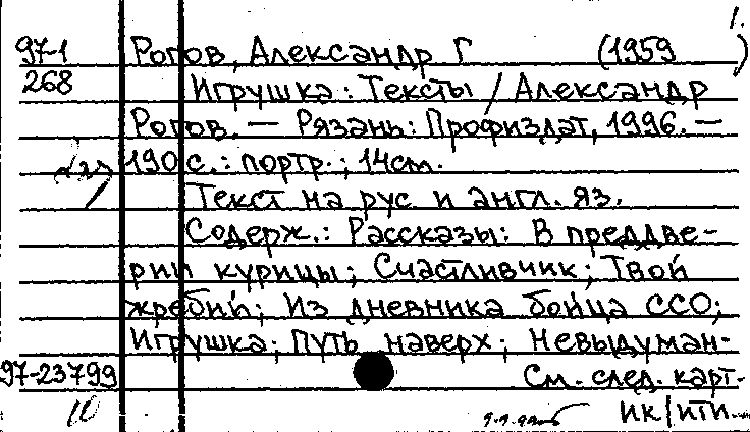 1.
97-1 Рогов, Александр Г (1959 )
268 Игрушка: Тексты / Александр
Рогов. — Рязань: Профиздат, 1996. —
190 с.: портр.; 14см.
Текст на рус и англ. яз.
Содерж.: Рассказы: В преддве-
рии курицы; Счастливчик; Твой
жребий; Из дневника бойца ССО;
Игрушка; Путь наверх; Невыдуман-
97-23799 См. след. карт.
10 ИК/ИТИ